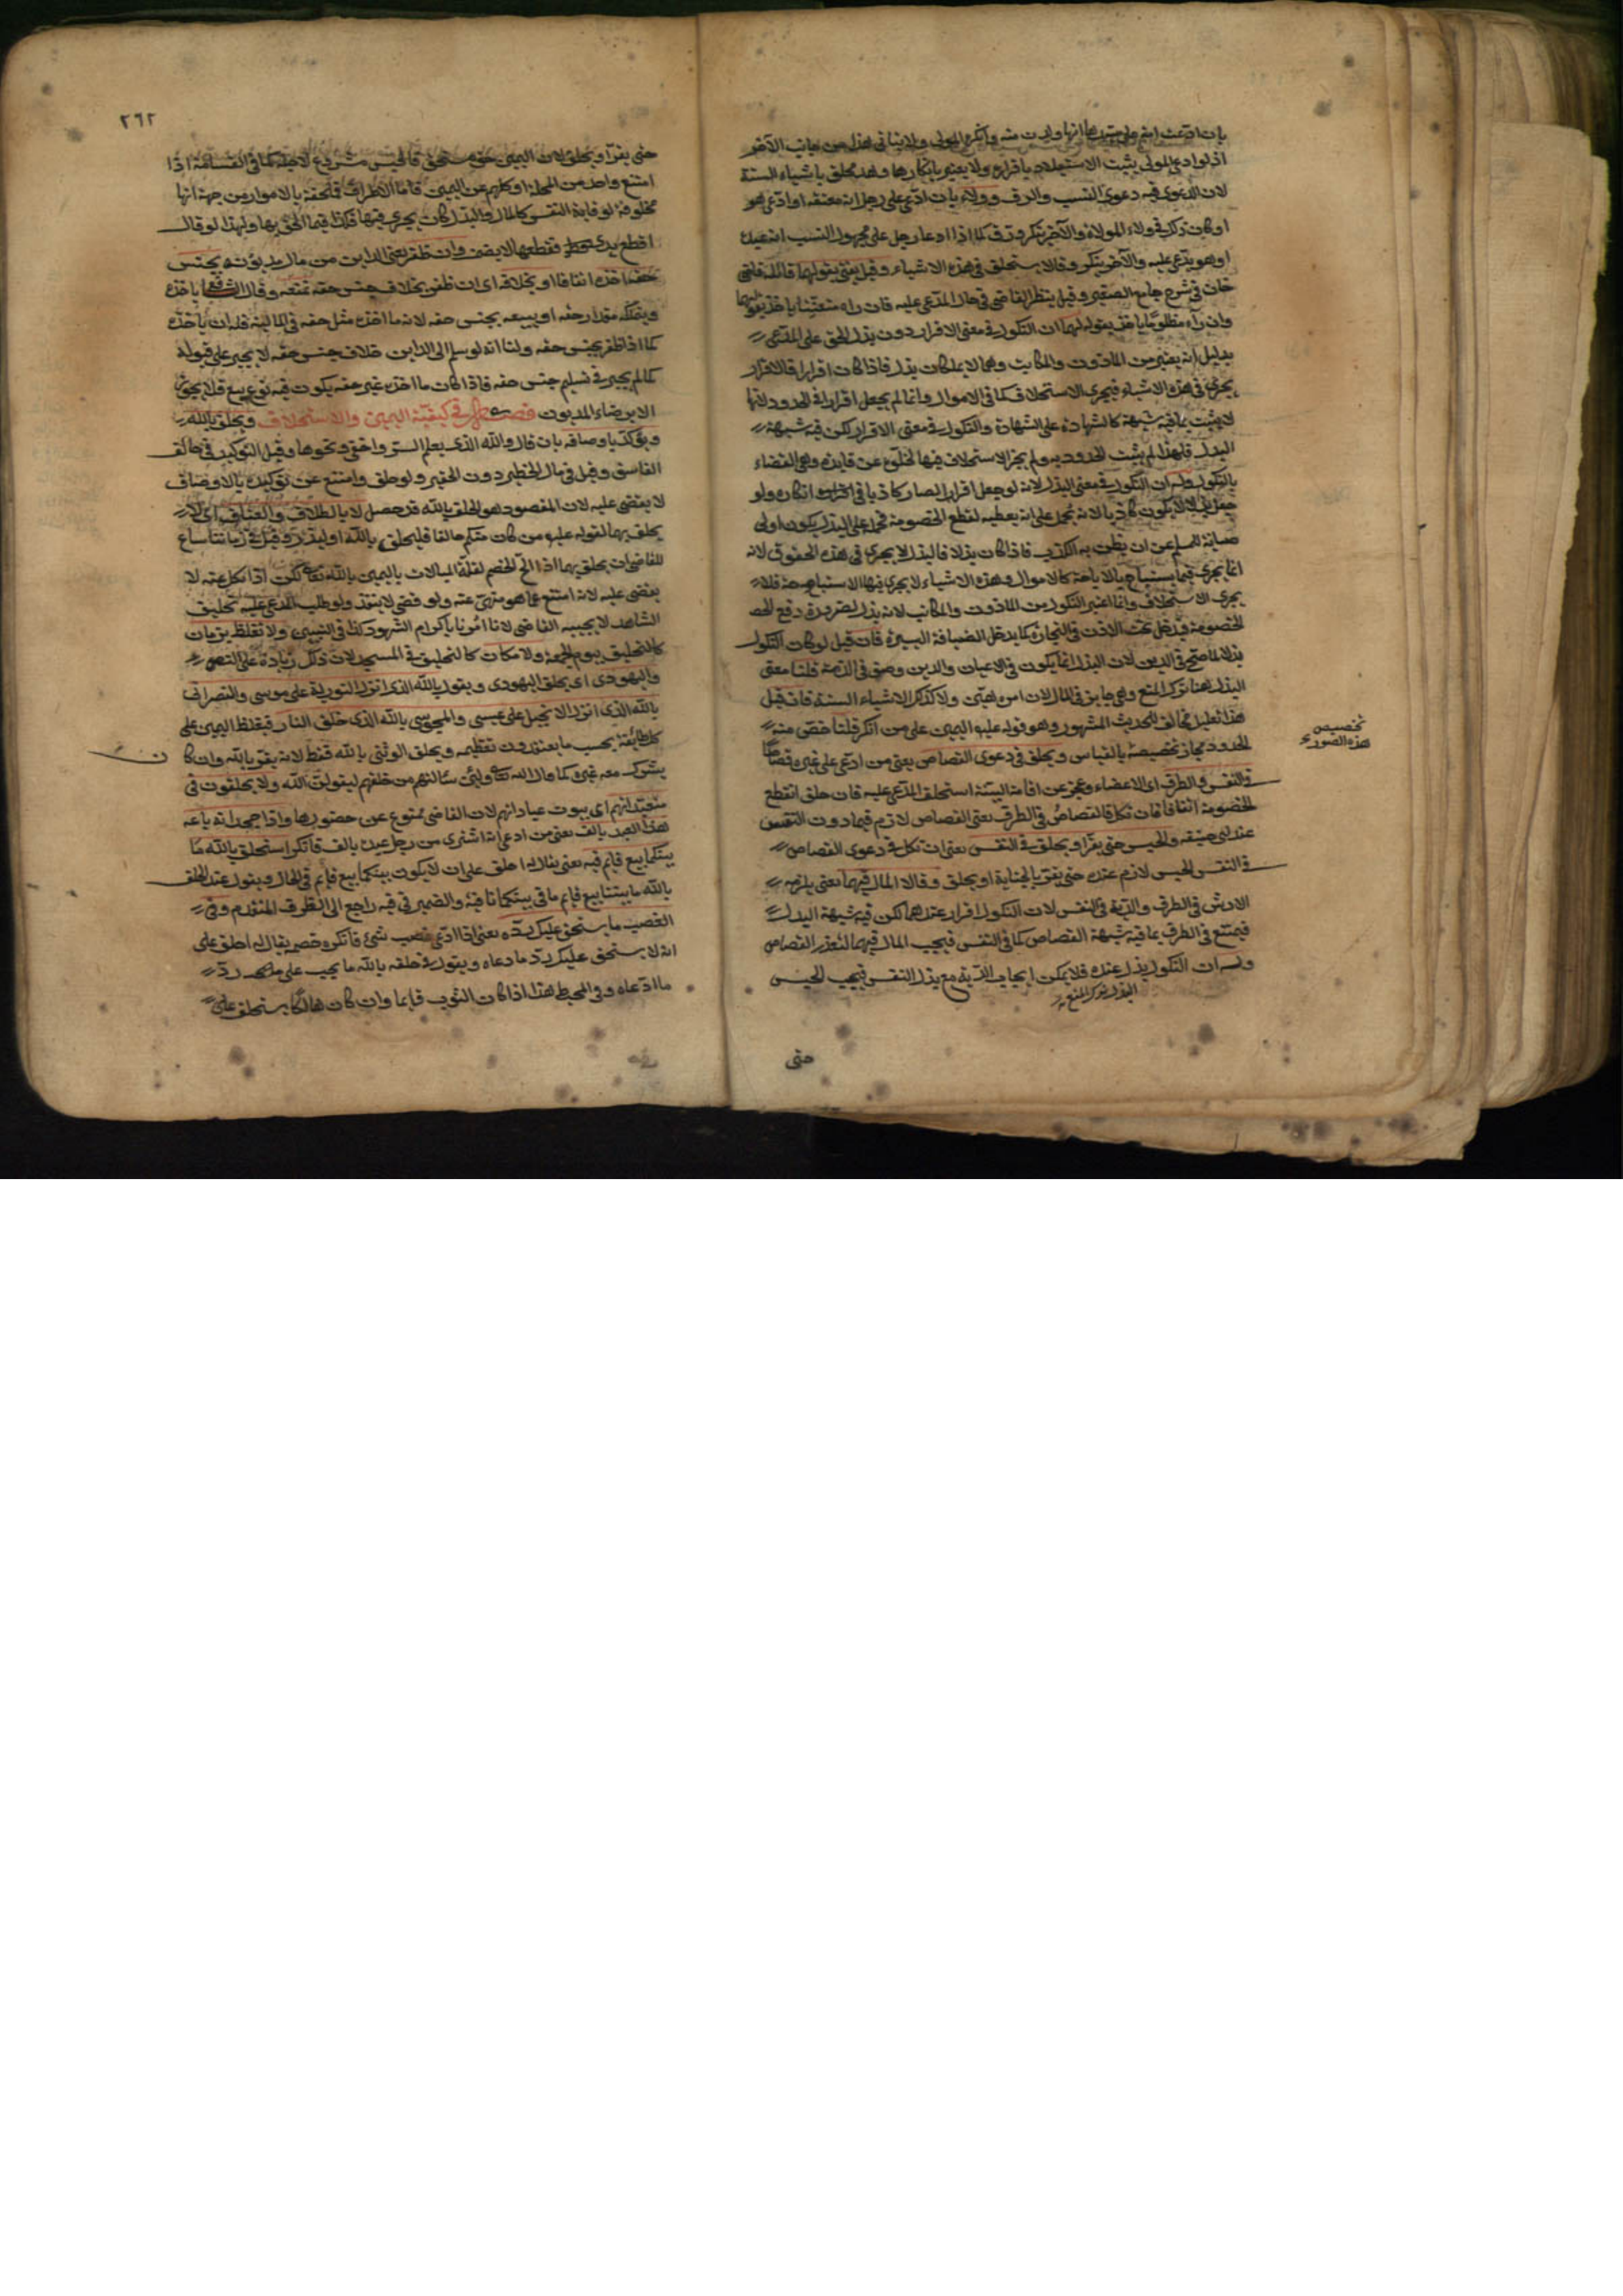 بان ادعت امة على سيدها انها ولدت منه وانكره المولى ولا يتأتى هذا من جانب الآخر
اذ لو ادعى المولى يثبت الاستيلاد باقراره ولا يعتبر بانكارها وحد ملحق باشياء الستة
لان الدعوى فيه دعوى النسب والرق وولاء بان ادعى على رجل انه معتقه او ادعى هو
او كان ذلك فى ولاء الموالاة والآخر ينكر ورق كما اذا ادعا رجل على مجهول النسب انه عبده
او هو يدعى عليه والآخر ينكر وقالا يستحلف فى هذه الاشياء وقيل يفتى بقولهما قاله قاضى
خان فى شرح جامع الصغير وقيل ينظر القاضى فى حال المدعى عليه فان راه متعنتا ياخذ بقولهما
وان رآه مظلوما ياخذ بقوله لهما ان النكول فى معنى الاقرار دون بذل الحق على المدعى
بدليل انه يعتبر من الماذون والمكاتب وهما لا يملكان بذل فاذا كان اقرارا فالاقرار
يجرى فى هذه الاشياء فيجرى الاستحلاف كما فى الاموال وانما لم يجعل اقرارا فى الحدود لانها
لا يثبت بما فيه شبهة كالشهادة على الشهادة والنكول فى معنى الاقرار لكن فيه شبهة
البذل فلهذا لم يثبت الحدود به ولم يجز الاستحلاف فيها لخلوه عن فايدة وهى القضاء
بالنكول وله ان النكول فى معنى البذل لانه لو جعل اقرارا لصار كاذبا فى انكاره ولو
جعل بذلا لا يكون كاذبا لانه يحمل على انه يعطيه لقطع الخصومة فحمله على البذل يكون اولى
صيانة للمسلم عن ان يظن به الكذب فاذا كان بذلا فالبذل لا يجرى فى هذه الحقوق لانه
انما يجرى فيما يستباح بالاباحة كالاموال وهذه الاشياء لا يجرى فيها الاستباحة فلا
يجرى الاستحلاف وانما اعتبر النكول من الماذون والمكاتب لانه بذل لضرورة دفع الخصـ
الخصومة فيدخل تحت الاذن فى التجارة كما يدخل الضيافة اليسيرة فان قيل لو كان النكول
بذلا لما صح فى الدين لان البذل انما يكون فى الاعيان والدين وصف فى الذمة قلنا معنى
البذل هنا ترك المنع وهى جايز فى المال لان امره اهين ولا كذلك الاشياء الستة فان قيل
هذا تعليل مخالف للحديث المشهور وهو قوله عليه اليمين على من انكر قلنا خص منه
الحدود فجاز تخصيصه بالقياس ويحلف فى دعوى القصاص يعنى من ادعى على غيره قصاصا
فى النفس والطرف اى الاعضاء وعجز عن اقامة البينة استحلف المدعى عليه فان حلف انقطع
الخصومة اتفاقا فان نكل فالقصاص فى الطرف يعنى القصاص لازم فيما دون النفس
عند ابى حنيفه والحبس حتى يقر او يحلف فى النفس يعنى ان نكل فى دعوى القصاص
فى النفس الحبس لازم عنده حتى يقر بالجناية او يحلف وقالا المال فيهما يعنى يلزمه
الارش فى الطرف والدية فى النفس لان النكول اقرار عندهما لكن فيه شبهة البدل
فيمتنع فى الطرف بما فيه شبهة القصاص كما فى النفس فيجب المال فيهما لتعذر القصاص
وله ان النكول بذل عنده فلا يمكن ايجاب الدية مع بذل النفس فيجب الحبس
البذل ترك المنع
حتى
تخصيص
هذه الصور
٢٦٢
حتى يقر او يحلف لان اليمين حق مستحق فالحبس مشروع لاجله كما فى القسامة اذا
امتنع واحد من المحلة او كلهم عن اليمين فاما الاطراف فملحقة بالاموال من جهة انها
مخلوقة لوقاية النفس كالمال والبذل كان يجرى فيها فكذا فيما الحق بها ولهذا لو قال
اقطع يدى فقطعها لا يضمن وان ظفر يعنى الداين من مال مديونه بجنس
حقه اخذه اتفاقا او بخلافه اى ان ظفر بخلاف جنس حقه نمنعه وقال الشافعى ياخذه
ويتملكه مقدار حقه او يبيعه بجنس حقه لانه ما اخذه مثل حقه فى المالية فله ان ياخذه
كما اذا ظفر بجنس حقه ولنا انه لو سلم الى الداين خلاف جنس حقه لا يجبر على قبوله
كما لم يجبر فى تسليم جنس حقه فاذا كان ما اخذه غير حقه يكون فيه نوع بيع فلا يجوز
الا برضاء المديون فصل فى كيفية اليمين والاستحلاف ويحلف بالله
ويؤكد باوصافه بان قال والله الذى يعلم السر واخفى ونحوها وقيل التوكيد فى حالف
الفاسق وقيل فى مال الخطير دون الحقير ولو حلف وامتنع عن توكيده بالاوصاف
لا يقضى عليه لان المقصود هو الحلف بالله قد حصل لا بالطلاق والعتاق اى لا
يحلف بهما لقوله عليه من كان منكم حالفا فليحلف بالله او ليذر وقيل فى زماننا ساغ
للقاضى ان يحلف بهما اذا الح الخصم لقلة المبالات باليمين بالله تعالى لكن اذا نكل عنه لا
يقضى عليه لانه امتنع عما هو منهى عنه ولو قضى لا ينفذ ولو طلب المدعى عليه تحليف
الشاهد لا يجيبه القاضى لانا امرنا باكرام الشهود كذا فى التبيين ولا تغلظ بزمان
كالتحليف بيوم الجمعة ولا مكان كالتحليف فى المسجد لان ذلك زيادة على النص
واليهودى اى يحلف اليهودى ويقول بالله الذى انزل التورية على موسى والنصرانى
بالله الذى انزل الانجيل على عيسى والمجوسى بالله الذى خلق النار فيغلظ اليمين على
كل طائفة بحسب ما يعتقدون تعظيمه ويحلف الوثنى بالله فقط لانه يقر بالله وان كا
ن
يشرك معه غيره كما قال الله تعالى ولئن سالتهم من خلقهم ليقولن الله ولا يحلفون فى
متعبداتهم اى بيوت عباداتهم لان القاضى ممنوع عن حضورها واذا جحد انه باعه
هذا العبد بالف يعنى من ادعى انه اشترى من رجل عبده بالف فانكر استحلف بالله ما
بينكما بيع قايم فيه يعنى يقال له احلف على ان لا يكون بينكما بيع قايم فى الحال ويقول عند الحلف
بالله ما بيننا بيع قايم ما فى بينكما نافية والضمير فى فيه راجع الى الظرف المتقدم وفى
الغصب ما يستحق عليك رده يعنى اذا ادعى غصب شئ فانكره خصمه يقال له احلف على
انه لا يستحق عليك رد ما ادعاه ويقول فى حلفه بالله ما يجب على رد
ما ادعاه وفى المحيط هذا اذا كان الثوب قايما وان كان هالكا يستحلف على